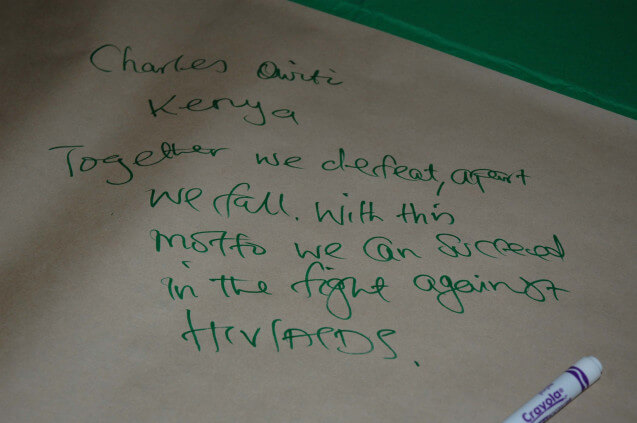 Charles Owiti
Kenya
Together we defeat, apart
we fall. With this
motto we can succeed
in the fight against
HIV/AIDS.
Crayola